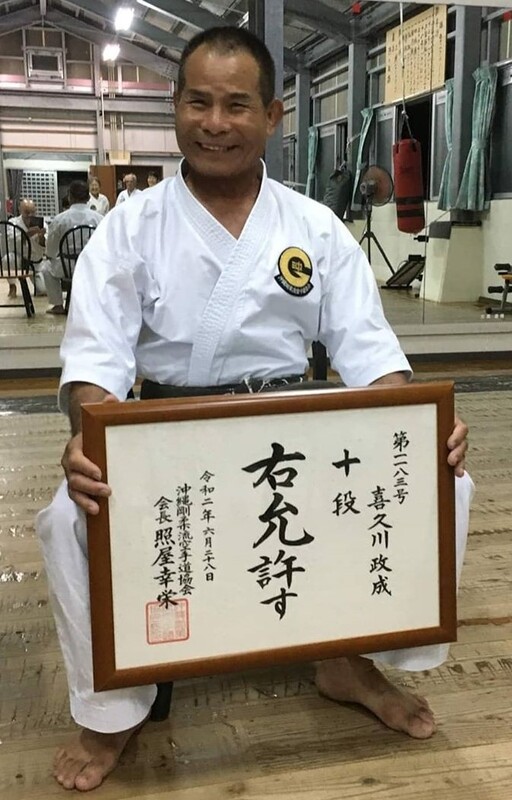 第一八三号
喜久川 政成
十段
右允許す
令和二年六月二十八日
沖縄剛柔流空手道協会
会長 照屋幸栄